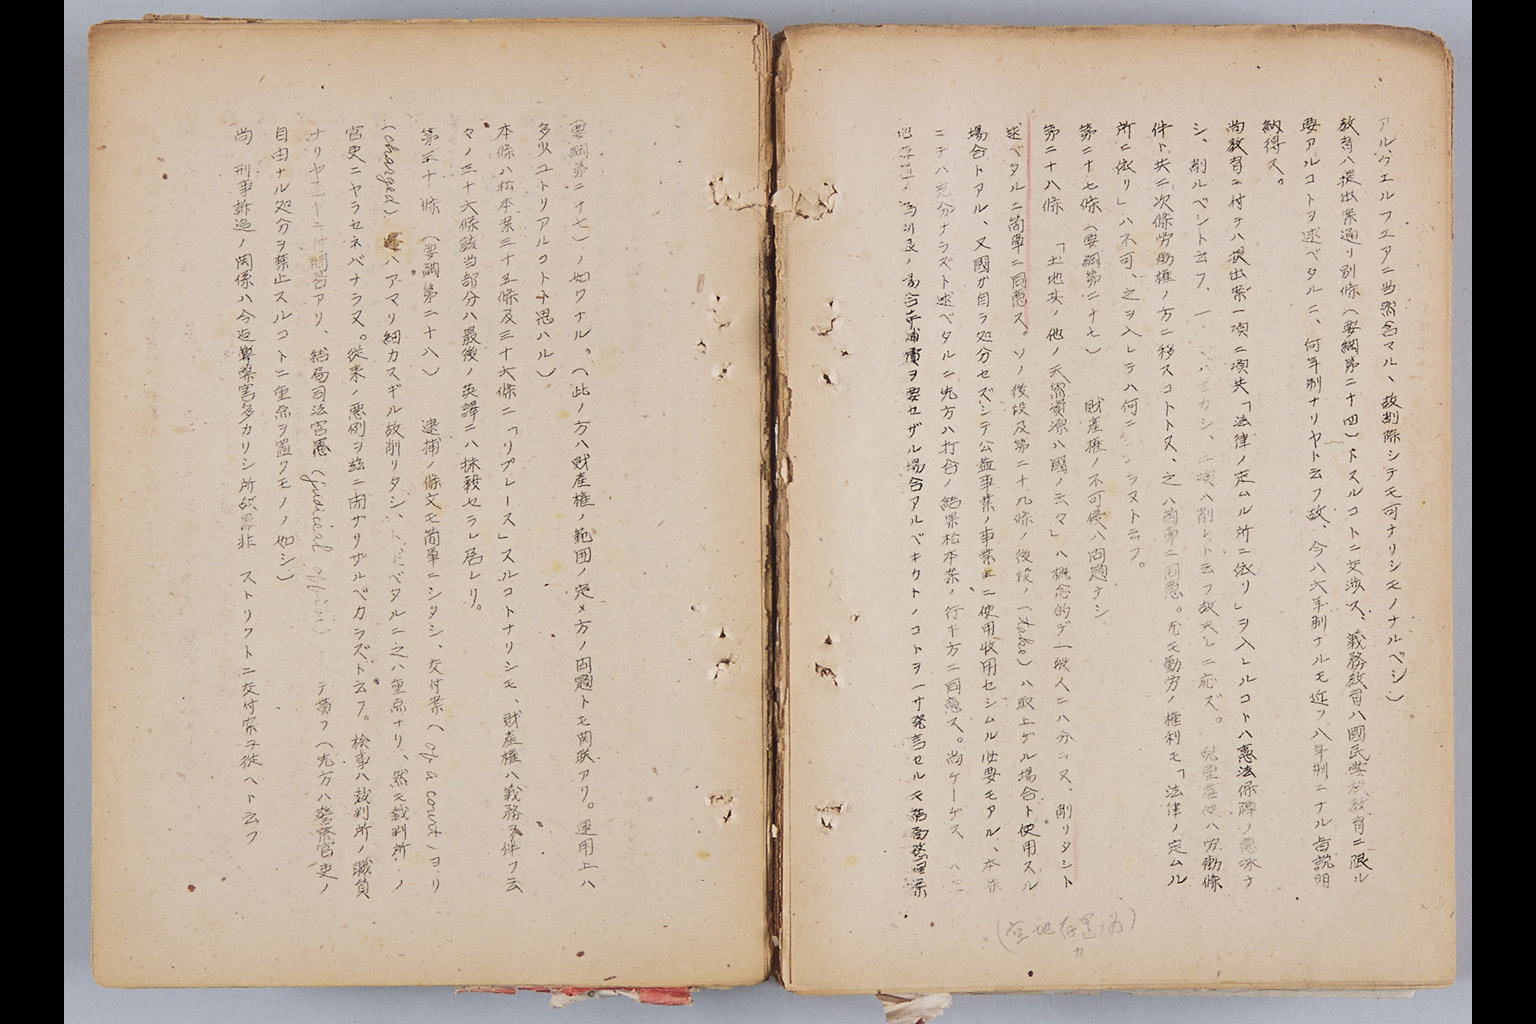 アル、ウエルフエアニ当然含マル、故削除シテモ可ナリシモノナルベシ)
教育ハ提出案通リ別條(要綱第二十四)トスルコトニ交渉ス、義務教育ハ國民学校教育ニ限ル
要アルコトヲ述ベタルニ、何年制ナリヤト云フ故、今ハ六年制ナルモ近ク八年制ニナル旨説明
納得ス。
尚教育ニ付テハ提出案一項二項共「法律ノ定ムル所ニ依リ」ヲ入レルコトハ憲法保障ノ意味ナ
シ、削ルベシト云フ、一 カシ、二項ハ削レト云フ故夫レニ応ズ。 児童虐使ハ労働條
件ト共ニ次條労働権ノ方ニ移スコトトス、之ハ簡単ニ同意。尤モ勤労ノ権利モ「法律ノ定ムル
所ニ依リ」ハ不可、之ヲ入レテハ何ニ ラヌト云フ。
第二十七條(要綱第二十七) 財産権ノ不可侵ハ問題ナシ。
第二十八條 「土地其ノ他ノ天然資源ハ國ノ云々」ハ概念的デ一般人ニハ分ラヌ、削リタシト
述ベタルニ簡単ニ同意ス。ソノ後段及第二十九條ノ後段ノ(take)ハ取上ゲル場合ト使用スル
場合トアル、又國ガ自ラ処分セズシテ公益事業ノ事業主ニ使用收用セシムル必要モアル、本案
ニテハ充分ナラズト述ベタルニ先方ハ打合ノ結果松本案ノ行キ方ニ同意ス。尚ケーヂス
場合ナド補償ヲ要セザル場合アルベキカトノコトヲ一寸発言セルモ結局
(空地存置
(要綱第二十七)ノ如クナル。(此ノ方ハ財産権ノ範囲ノ定メ方ノ問題トモ関聯アリ。運用上ハ
多少ユトリアルコトト思ハル)
本條ハ松本案三十五條及三十六條ニ「リプレース」スルコトナリシモ、財産権ハ義務ヲ伴フ云
々ノ三十六條該当部分ハ最後ノ英譯ニハ抹殺セラレ居レリ。
第三十條 (要綱第二十八) 逮捕ノ條文モ簡単ニシタシ、交付案(of a court)ヨリ
(charged)迄ハアマリ細カスギル故削リタシ、ト述ベタルニ之ハ重点ナリ、然モ裁判所ノ
官吏ニヤラセネバナラヌ。従来ノ悪例ヲ茲ニ閉ザサザルベカラズト云フ。検事ハ裁判所ノ職員
ナリヤ否ヤニ付問答アリ、結局司法官憲(judicial officer)デ貰フ(先方ハ警察官吏ノ
自由ナル処分ヲ禁止スルコトニ重点ヲ置クモノノ如シ)
尚 刑事訴追ノ関係ハ今迄弊害多カリシ所故是非 ストリクトニ交付案ヲ従ヘト云フ